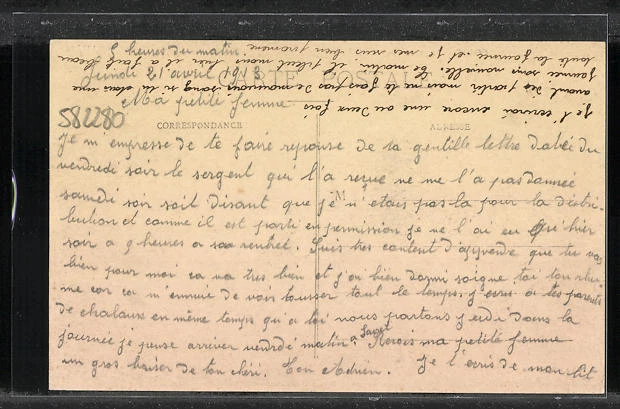 5 heures du matin.
Lundi 21 avril 19
CARTE POSTALE
Ma petite femme
582280
CORRESPONDANCE
ADRESSE
Je m empresse de te faire reponse de ta gentille lettre datée du
vendredi soir le sergent qui l'a reçue ne me l'a pas donnée
samedi soir soit disant que je n'etais pas la pour la distri-
M
bution et comme il est parti en permission je ne l'ai eu qu'hier
soir a 9 heures a sa rentrée. Suis tres content d'apprendre que tu vas
bien pour moi ca va tres bien et j'ai bien dormi soigne toi ton rhu-
me car ca m'ennuie de vous tousser tout le temps j'ecris a tes parents
de chalaux en même temps qu'a toi nous partons jeudi dans la
journée je pense arriver vendredi matin a Laval Recois ma petite femme
un gros baiser de ton chéri. Ton Adrien. Je l'ecris de mon lit
je t'ecrirai encore une ou deux fois
avant de partir mais ne te fais pas de mauvais sang si tu etais une
journée sans nouvelle. Ce matin il
toute la journée et je me suis bien promené